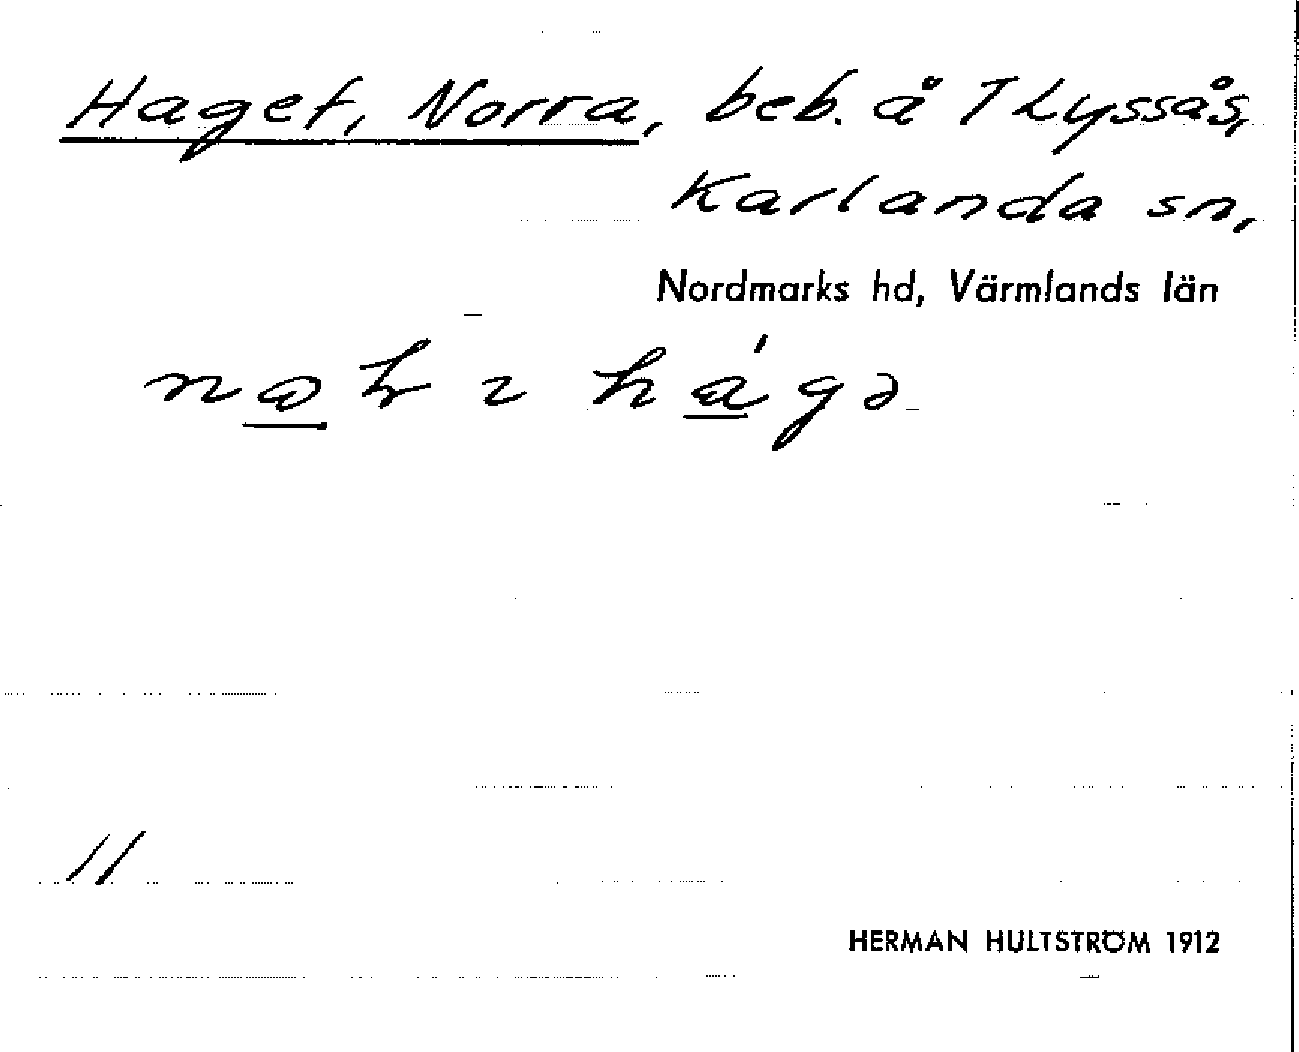 Haget, Norra, beb. å T Lyssås,
Karlanda sn,
Nordmarks hd, Värmlands län
hágə
11
HERMAN HULTSTRÖM 1912